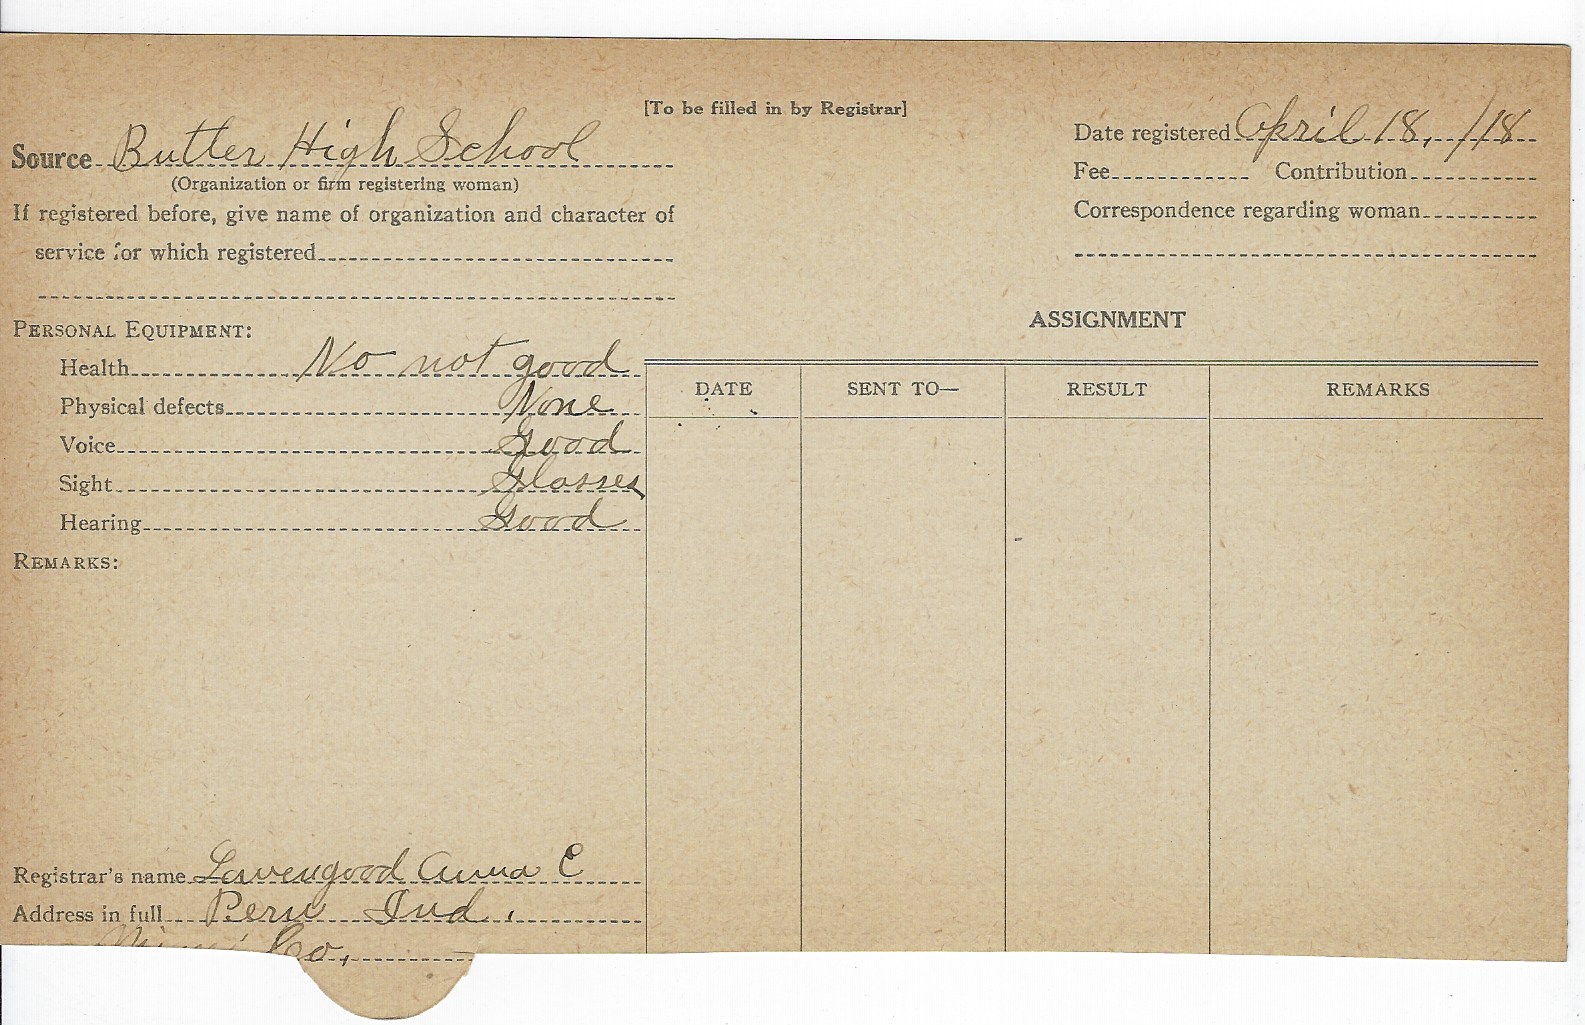 [To be filled in by Registrar]
Source Butler High School
(Organization or firm registering woman)
If registered before, give name of organization and character of
service for which registered
Date registered April 18, /18
Fee Contribution
Correspondence regarding woman
PERSONAL EQUIPMENT:
Health No not good
Physical defects None
Voice Good
Sight Glasses
Hearing Good
REMARKS:
Registrar's name Lavengood Anna C
Address in full Peru Ind.
Miami Co.
ASSIGNMENT
DATE SENT TO— RESULT REMARKS